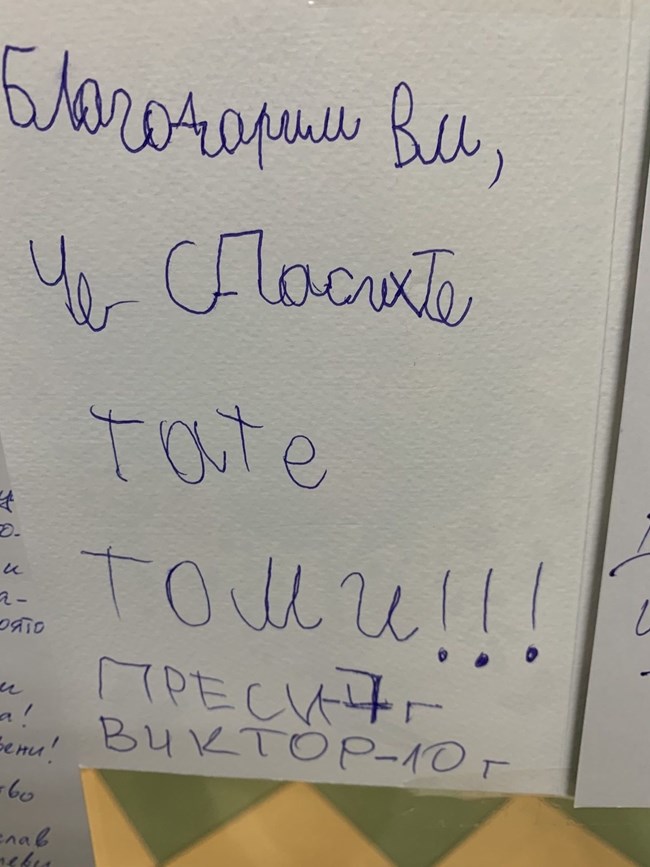 Благодарим Ви,
Че СПасихТе
таТе
Томи!!!
ПРЕСИ-7г
ВИКТОР-10г
о-
и
а-
ОЯТО
и
а!
вени!
тво
слав